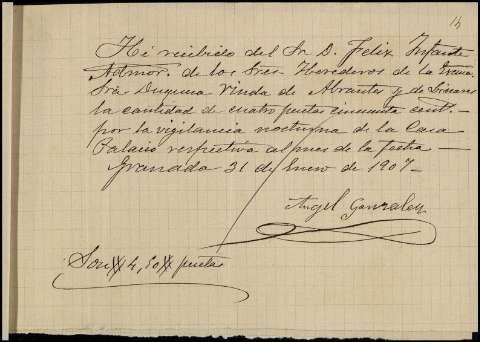 14
He recibido del Sr. D. Felix Infante
Admor. de los Sres. Herederos de la Excma.
Sra. Duquesa Viuda de Abrantes y de Linares
la cantidad de cuatro ptas cincuenta cent. —
por la vigilancia nocturna de la Casa
Palacio respectiva al mes de la fecha —
Granada 31 de Enero de 1907 —
Angel Gonzalez
Son # 4,50 # pesetas